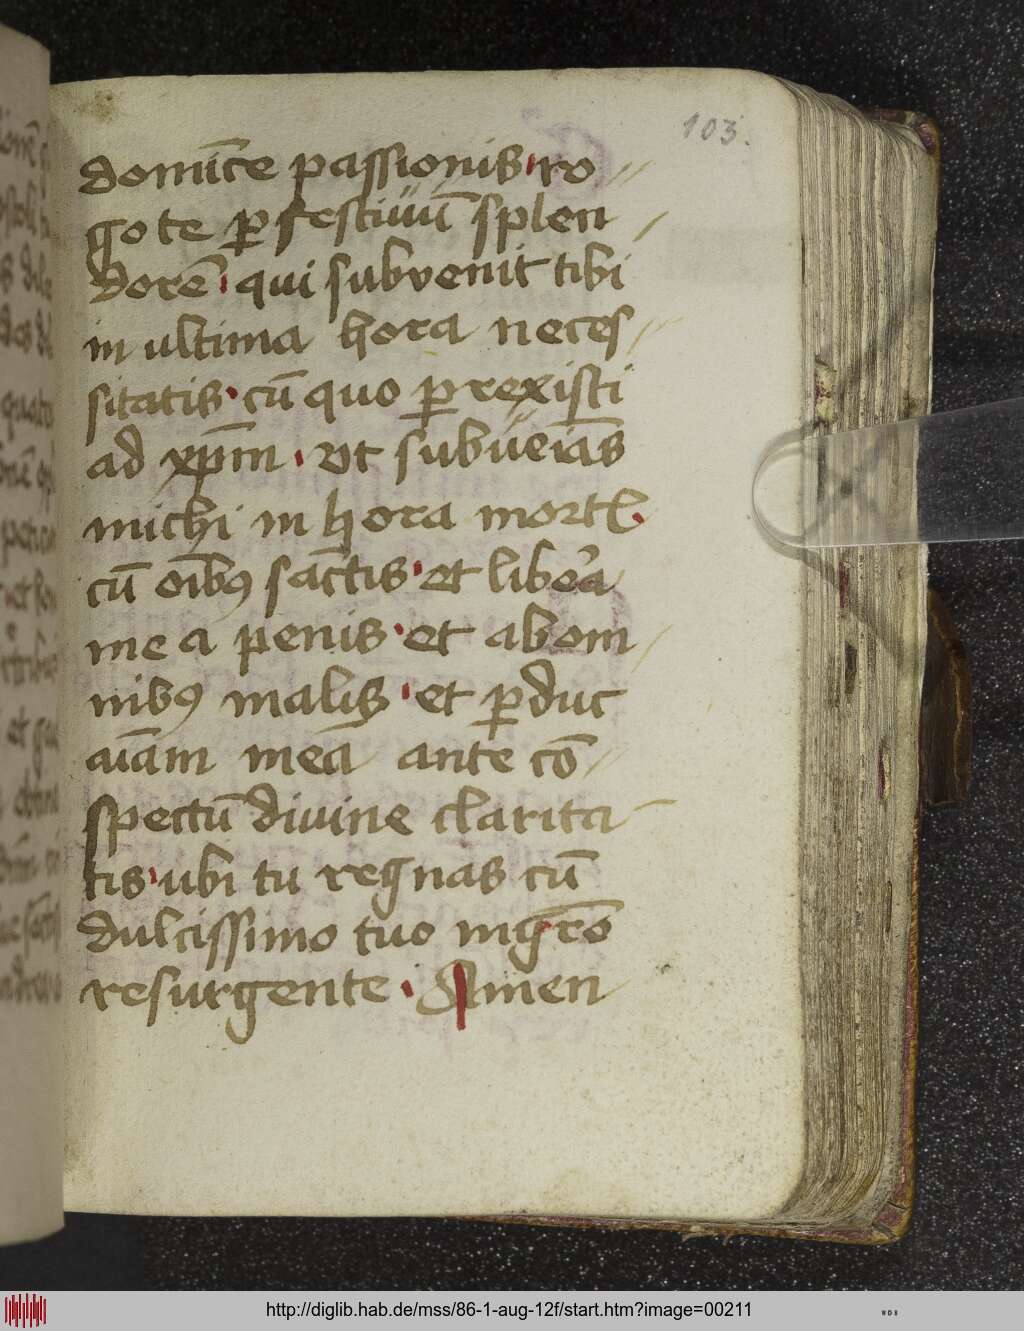 103.
domīce passionis ro
go te ꝑ festiuū splen
dorē qui subvenit tibi
in ultima hora neces
sitatis cū quo ꝑrexisti
ad xp̄m Ut subueīas
michi in hora mortꝭ
cū oībꝯ sāctis et libera
me a penis et ab om
nibꝯ malis et ꝑduc
aīam meā ante cō
spectū divine clarita
tis ubi tu regnas cū
dulcissimo tuo
resurgente Amen
http://diglib.hab.de/mss/86-1-aug-12f/start.htm?image=00211